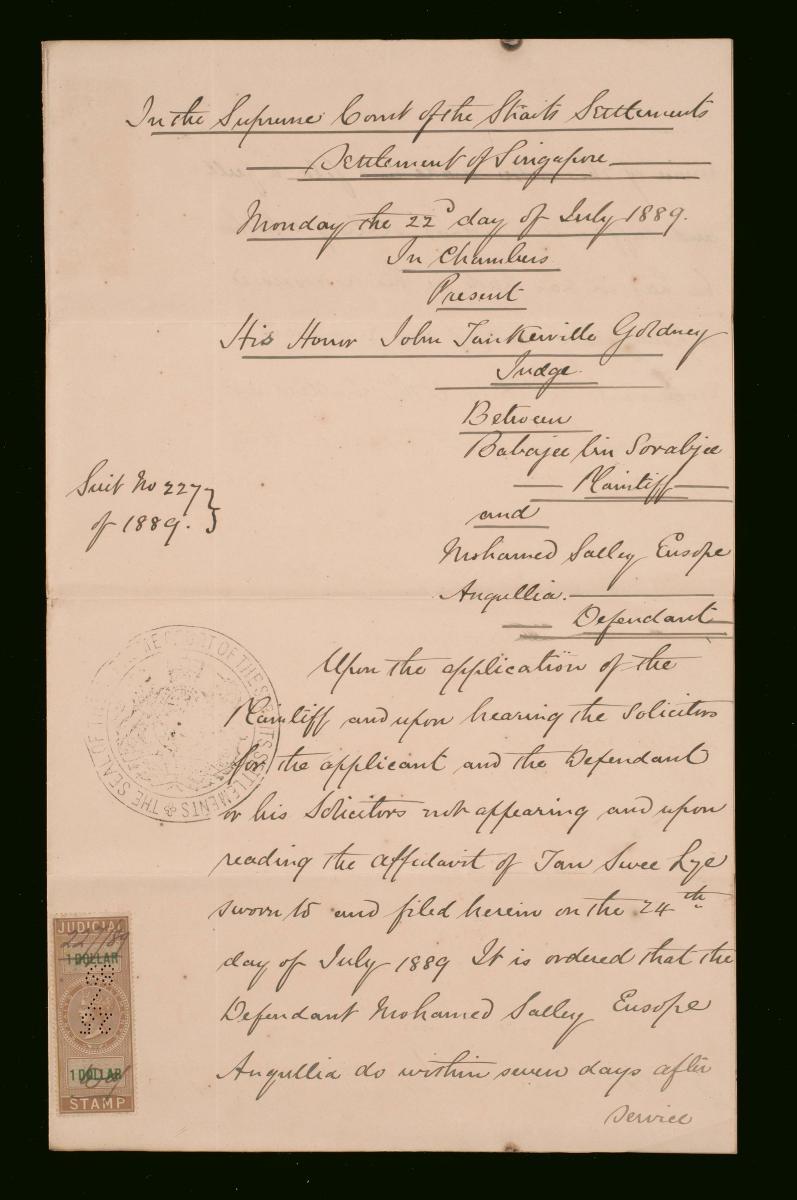 In the Supreme Court of the Straits Settlements
Settlement of Singapore
Monday the 22d day of July 1889.
In Chambers
Present
His Honor John Tankerville Goldney
Judge.
Between
Babajee bin Sorabjee
Plaintiff
Suit No 227
of 1889.
and
Mohamed Salley Eusope
Angullia.
Defendant
Upon the application of the
Plaintiff and upon hearing the Solicitors
for the applicant and the Defendant
or his Solicitors not appearing and upon
reading the affidavit of Tan Swee Lye
sworn to and filed herein on the 24th
day of July 1889 It is ordered that the
Defendant Mohamed Salley Eusope
Angullia do within seven days after
service
THE SEAL OF THE SUPREME COURT OF THE STRAITS SETTLEMENTS
JUDICIAL
227/89
1 DOLLAR
1 DOLLAR
STAMP